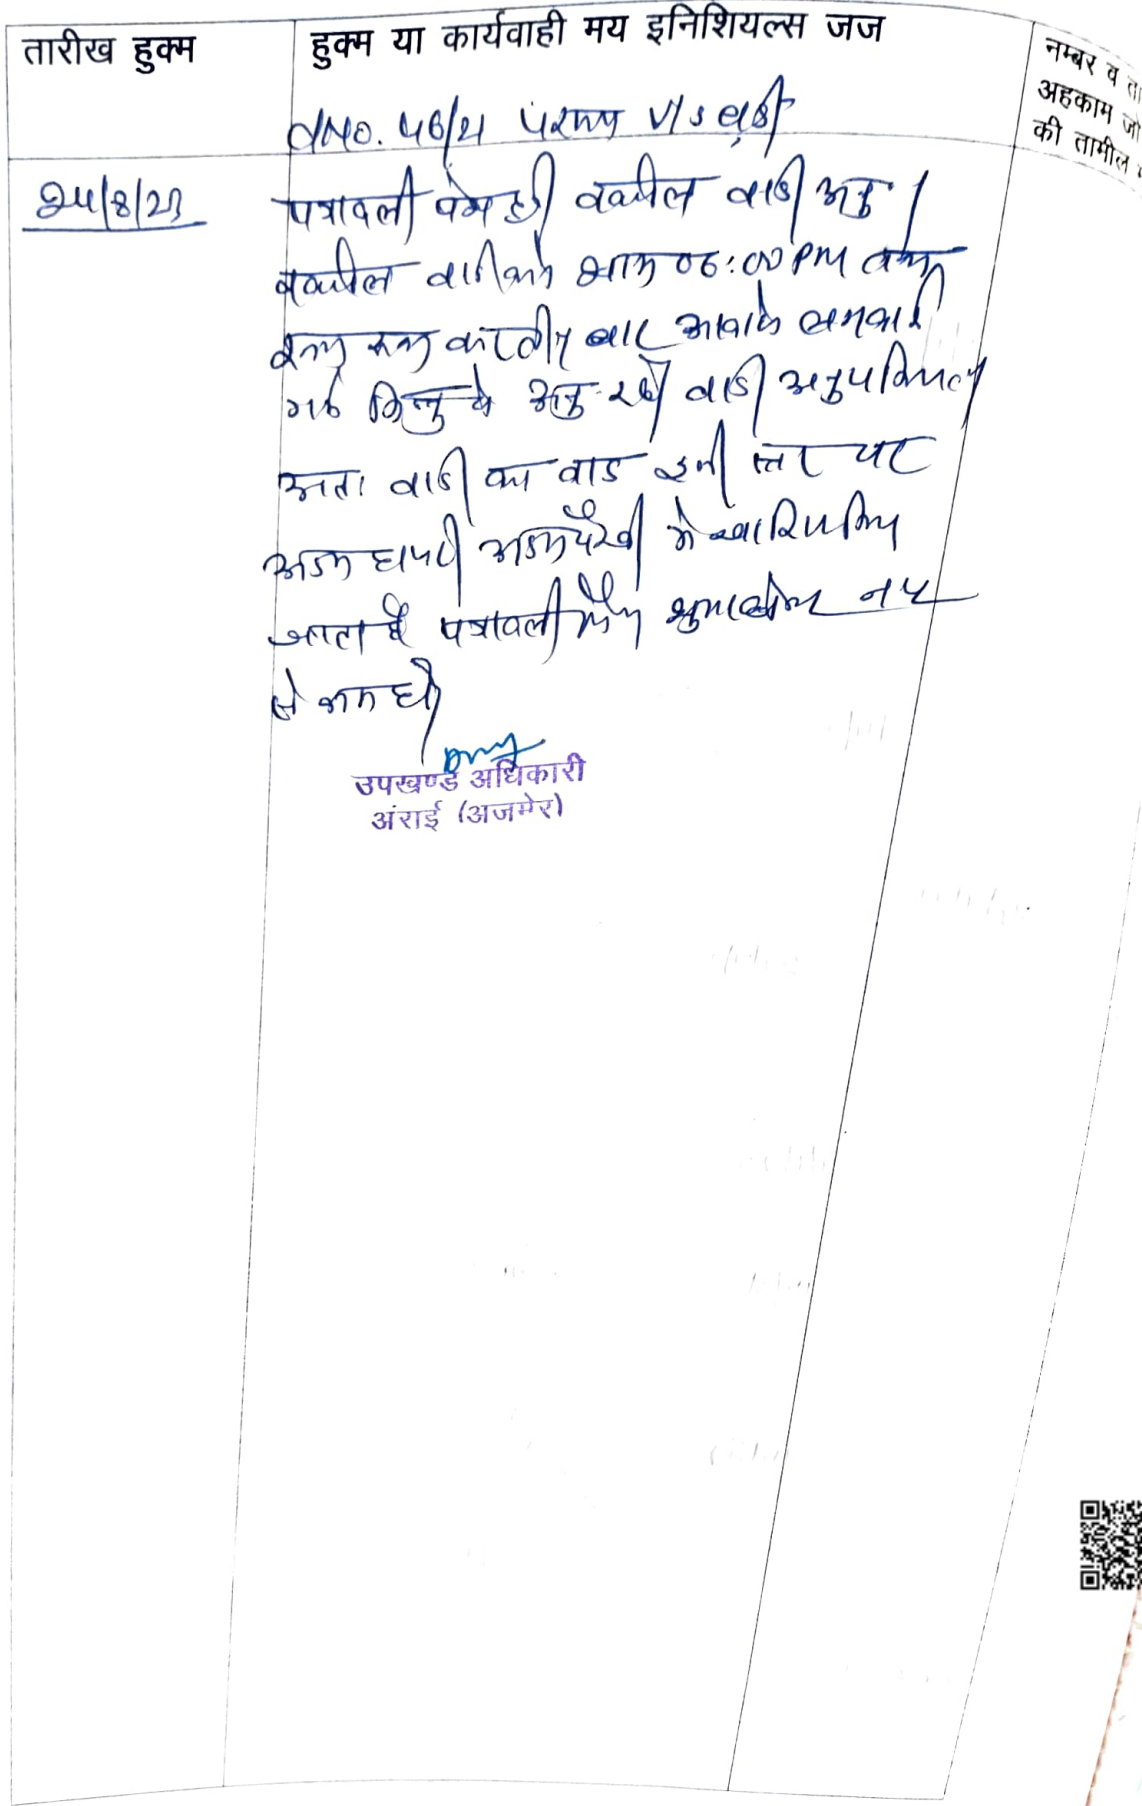 तारीख हुक्म
हुक्म या कार्यवाही मय इनिशियल्स जज
नम्बर व ता
अहकाम जो
की तामील
46/21 V/S
24/8/23
पत्रावली पेश हुई वकील वादी अनु।
वकील वादी को शाम 06:00 PM तक
बार आवाजे लगवाई
गई किन्तु वे अनु. रहे वादी अनुपस्थित
अतः वादी का वाद इसी स्तर पर
अदम हाजरी अदम पैरवी मे खारिज किया
जाता है पत्रावली फैसल शुमार होकर नम्बर
से कम हो
उपखण्ड अधिकारी
अंराई (अजमेर)